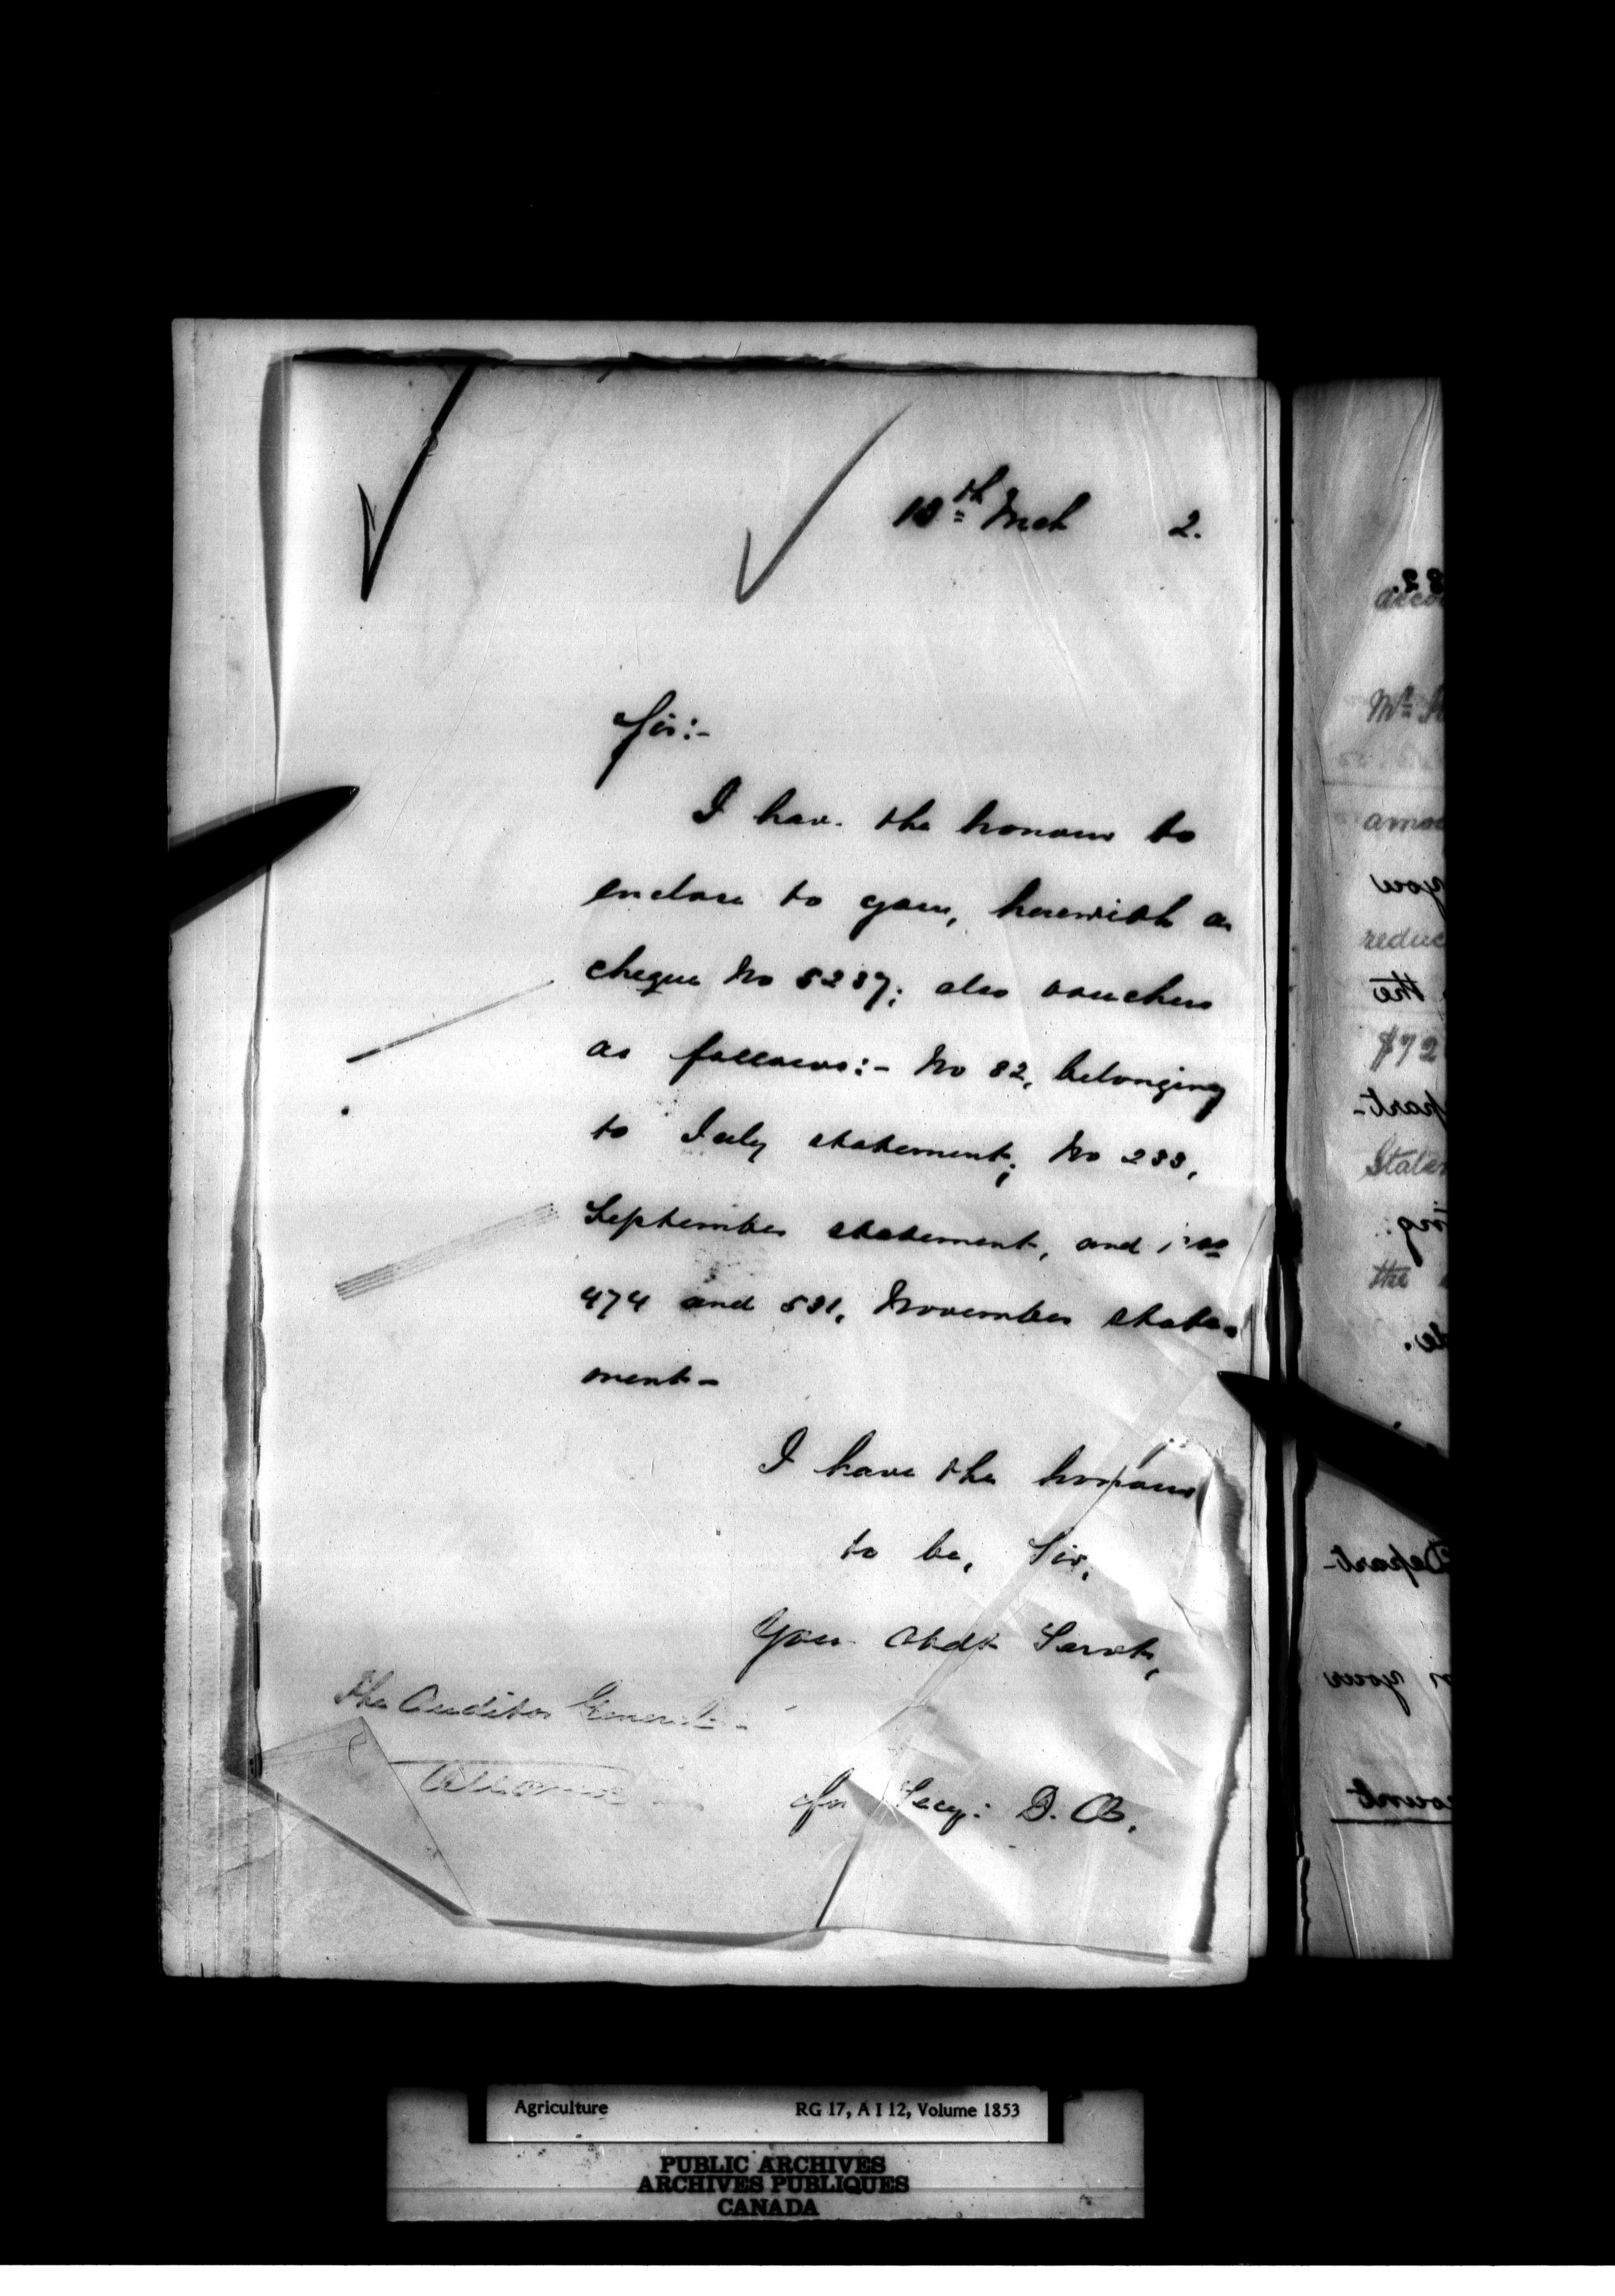 13th Mch 2.
Sir:-
I have the honour to
enclose to you, herewith a
cheque No 5237; also vouchers
as follows:- No 82, belonging
to July statement; No 233,
September statement, and Nos
474 and 531, November state-
ment-
I have the honour
to be, Sir,
Your Obdt Servt,
The Auditor General-
Ottawa
for Secy: D. A.
82.
acco
Mr
amo
you
reduc
the
$72
part-
State
ing.
the
Depart-
your
count
Agriculture RG 17, A I 12, Volume 1853
PUBLIC ARCHIVES
ARCHIVES PUBLIQUES
CANADA